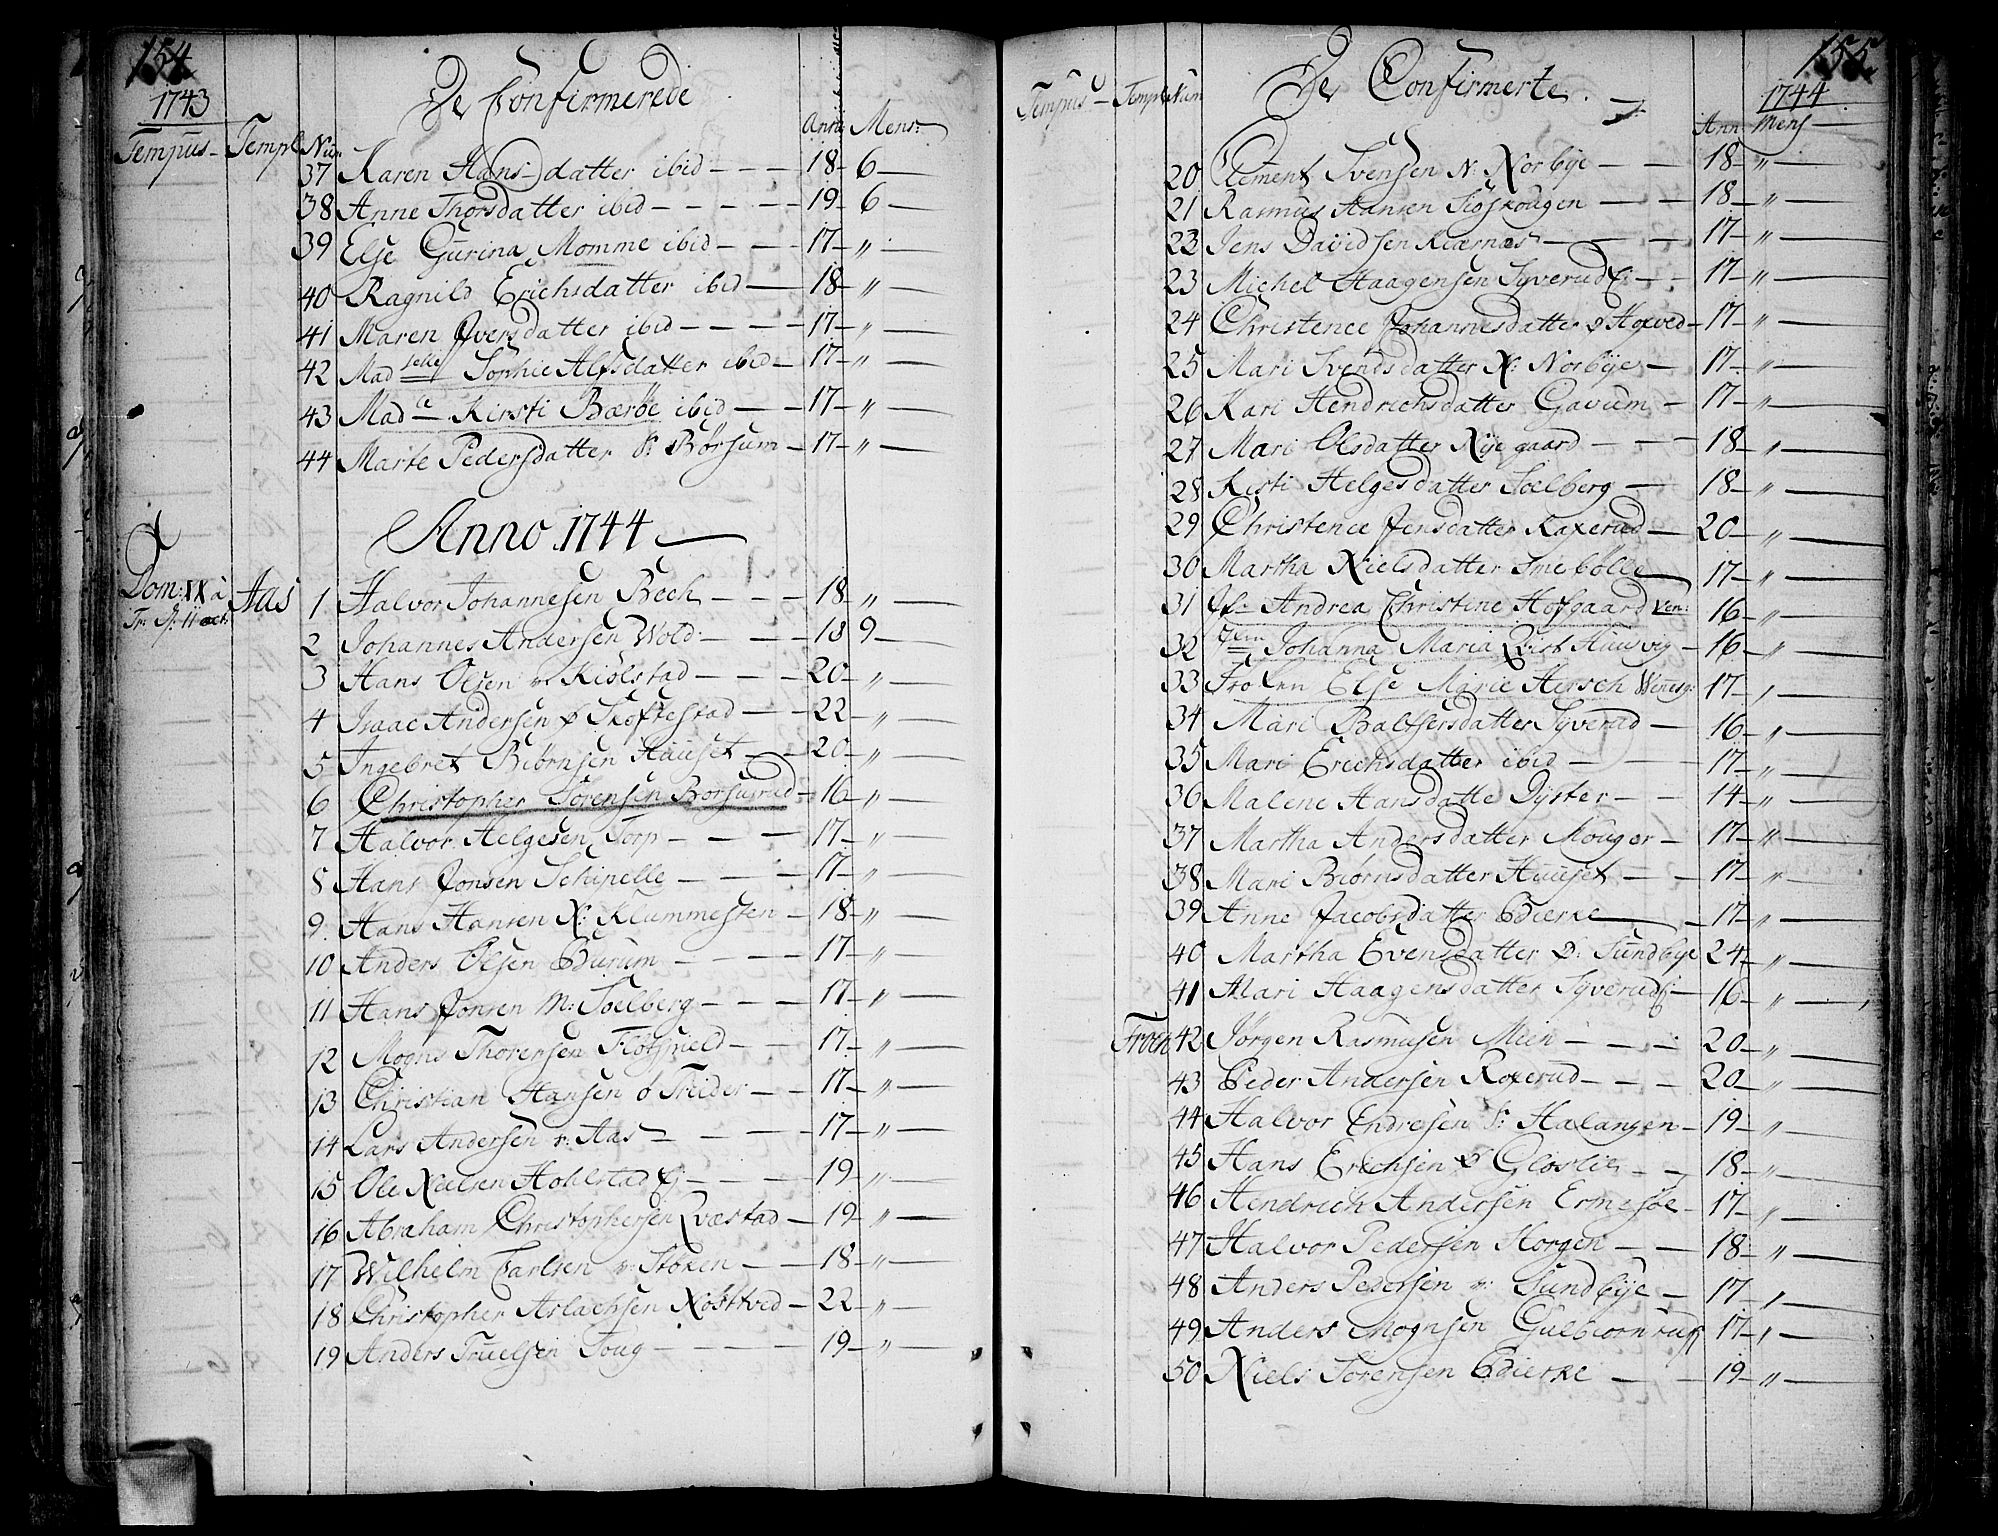 154
1743
De Confirmerede
Tempus Templ Num Anni Mens:
37 Karen Hans-datter ibid 18 6
38 Anne Thorsdatter ibid 19 6
39 Else Gurina Momme ibid 17 "
40 Ragnild Erichsdatter ibid 18 "
41 Maren Iversdatter ibid 17 "
42 Mad selle Sophie Alfsdatter ibid 17 "
43 Mad e Kirsti Bærøe ibid 17 "
44 Marte Pedersdatter S: Børsum 17 "
Anno 1744
Dom: XX à Aas 1 Halvor Johannesen Bech 18 "
Tr: 11 oct: 2 Johannes Andersen Wold 18 9
3 Hans Olsen v: Kiølstad 20 "
4 Isaac Andersen Ø Skoftestad 22 "
5 Ingebret Biørnsen Huuset 20 "
6 Christopher Sørensen Borsugrud 16 "
7 Halvor Helgesen Torp 17 "
8 Hans Jonsen Schipelle 17 "
9 Hans Hansen N: Klummesten 18 "
10 Anders Olsen Burum 17 "
11 Hans Jonsen M: Soelberg 17 "
12 Mogns Thorersen Fløtspield 17 "
13 Christian Hansen Ø Treider 17 "
14 Lars Andersen v: Aas 17 "
15 Ole Nielsen Hohlstad Ej 19 "
16 Abraham Christophersen Qvæstad 19 "
17 Wilhelm Carlsen v: Stoken 18 "
18 Christopher Aslachsen Nøstved 22 "
19 Anders Truelsen Toug 19 "
155
1744
De Confirmerte
Tempus Templ Num Ann Mens
20 Clement Svensen N: Norbye 18 "
21 Rasmus Hansen Siøskougen 18 "
23 Jens Davidsen Kiærnæs 17 "
23 Michel Haagensen Syverud Ej: 17 "
24 Christence Johannesdatter Ø Hoxved 17 "
25 Mari Svendsdatter N: Norbye 17 "
26 Kari Hendrichsdatter Gavum 17 "
27 Mari Olsdatter Nye gaard 18 "
28 Kisti Helgesdatter Soelberg 18 "
29 Christence Jensdatter Kaxerud 20 "
30 Martha Nielsdatter Smebølle 17 "
31 Jfr Andrea Christine Hofgaard Ven: 16 "
32 Johanna Maria Qvist Huusvig 16 "
33 Frøken Else Marie Hersch Wenesg: 17 "
34 Mari Baltsersdatter Syverud 16 "
35 Mari Erichsdatter ibid 17 "
36 Malene Hansdatte Dyster 14 "
37 Martha Andersdatter Mouger 17 "
38 Mari Biørnsdatter Huuset 17 "
39 Anne Jacobsdatter Bierke 17 "
40 Martha Evensdatter Ø: Sundbye 24 "
41 Mari Haagensdatter Syverud Ej 16 "
Froen 42 Jørgen Rasmusen Mien 20 "
43 Peder Andersen Roxerud 20 "
44 Halvor Endresen S: Halangen 19 "
45 Hans Erichsen Ø Gloslie 18 "
46 Hendrich Andersen Ermesøe 17 "
47 Halvor Pedersen Horgen 18 "
48 Anders Pedersen v: Sundbye 17 "
49 Anders Mognsen Gulbiørnrud 17 "
50 Niels Sørensen Bierke 19 "